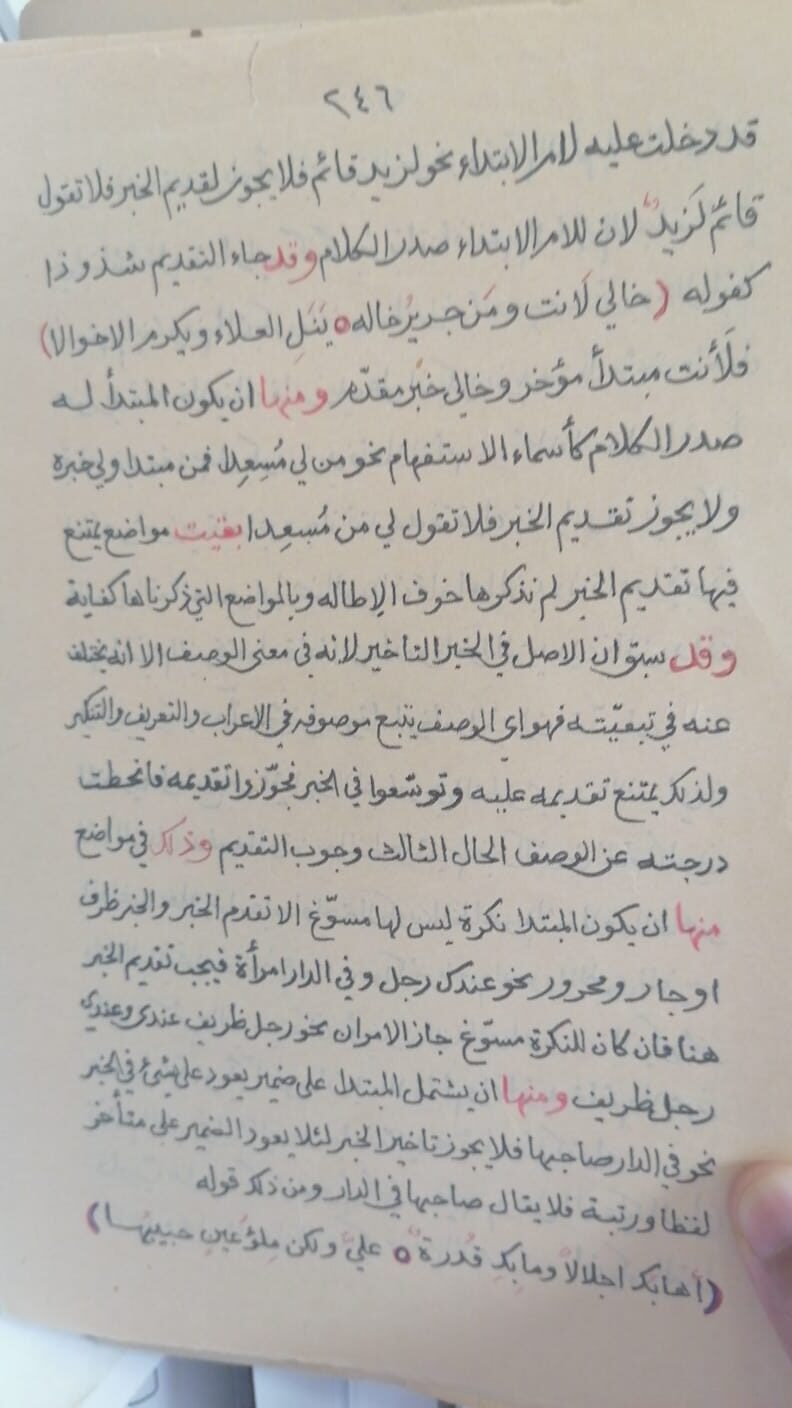 ٢٤٦
قد دخلت عليه لام الابتداء نحو لزيد قائم فلا يجوز لقديم الخبر فلا تقول
قائم لَزيدٌ لان للام الابتداء صدر الكلام وقد جاء التقديم شذوذا
كقوله (خالي لَانت ومَن جرير خاله ٥ يَنَلِ العلاء ويكرم الاخوالا)
فلَأنت مبتدأ مؤخر وخالي خبر مقدّم ومنها ان يكون المبتدأ له
صدر الكلام كأسماء الاستفهام نحو من لي مُسعِدا فمن مبتدا ولي خبره
ولا يجوز تقديم الخبر فلا تقول لي من مُسعِدا بقيت مواضع يمتنع
فيها تقديم الخبر لم نذكرها خوف الاطاله وبالمواضع التي ذكرناها كفاية
وقد سبق ان الاصل في الخبر التاخير لانه في معنى الوصف الا انه يختلف
عنه في تبعيّته فهو اي الوصف يتبع موصوفه في الاعراب والتعريف والتنكير
ولذلك يمتنع تقديمه عليه وتوسّعوا في الخبر فجوّزوا تقديمه فانحطت
درجته عن الوصف الحال الثالث وجوب التقديم وذلك في مواضع
منها ان يكون المبتدا نكرة ليس لها مسوّغ الا تقدم الخبر والخبر ظرف
او جار ومجرور نحو عندك رجل وفي الدار امرأة فيجب تقديم الخبر
هنا فان كان للنكرة مسوّغ جاز الامران نحو رجل ظريف عندي وعندي
رجل ظريف ومنها ان يشتمل المبتدا على ضمير يعود على شيئ في الخبر
نحو في الدار صاحبها فلا يجوز تاخير الخبر لئلا يعود الضمير على متأخر
لفظا ورتبة فلا يقال صاحبها في الدار ومن ذلك قوله
(اهابك اجلالاً وما بكِ قُدرةٌ ٥ عليَّ ولكن مِلؤُ عينٍ حبيبُها)